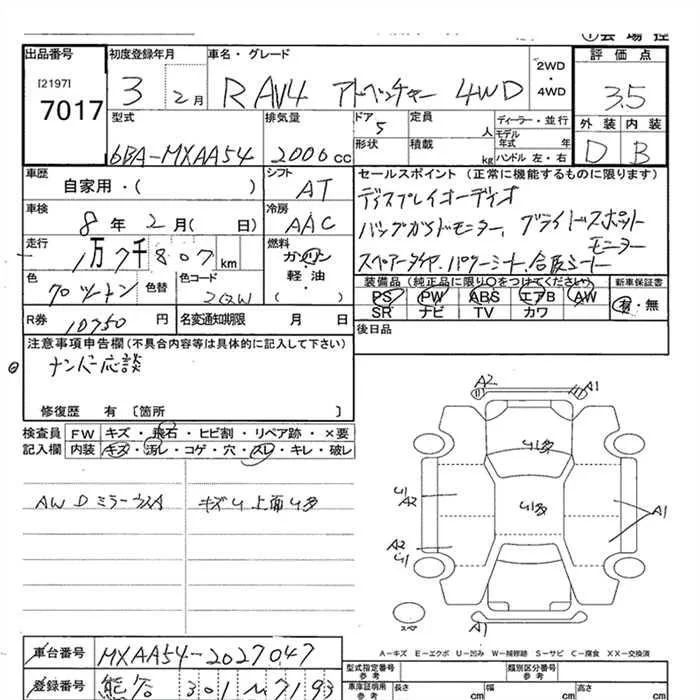 ①会場控
出品番号 初度登録年月 車名・グレード 2WD・4WD 評価点
[2197]
7017
3 2月 RAV4 アドベンチャー 4WD 3.5
型式 排気量 ドア 定員 ディーラー・並行 外装 内装
6BA-MXAA54 2000cc 5 人 モデル年式 年 D B
形状 積載 kg ハンドル 左・右
車歴 自家用・( ) シフト AT
セールスポイント(正常に機能するものに限ります)
ディスプレイオーディオ
バックガイドモニター、ブラインドスポット
モニター
スペアータイヤ、パワーシート、合皮シート
車検 8年 2月( 日) 冷房 AAC
走行 1万7千807km 燃料 ガソリン・軽油・( )
色 色替 色コード
ツートン
装備品(純正品に限り○をつけてください) 新車保証書
PS PW ABS エアB AW 有・無
SR ナビ TV カワ
R券 10750円 名変通知期限 月 日
後日品
注意事項申告欄(不具合内容等は具体的に記入して下さい)
ナンバー応談
修復歴 有〔箇所 〕
検査員記入欄 FW キズ・飛石・ヒビ割・リペア跡・×要
内装 キズ・汚レ・コゲ・穴・スレ・キレ・破レ
AW Dミラーウラ キズU 上面U多
A2 A1
U多
U多
U1
A2
A1
A2
U1
A1
A-キズ E-エクボ U-凹み W-補修跡 S-サビ C-腐食 XX-交換済
車台番号 MXAA54-2027047
登録番号 熊谷 301 7193
型式指定番号 参考 類別区分番号 参考
車庫証明用 参考 長さ cm 幅 cm 高さ cm